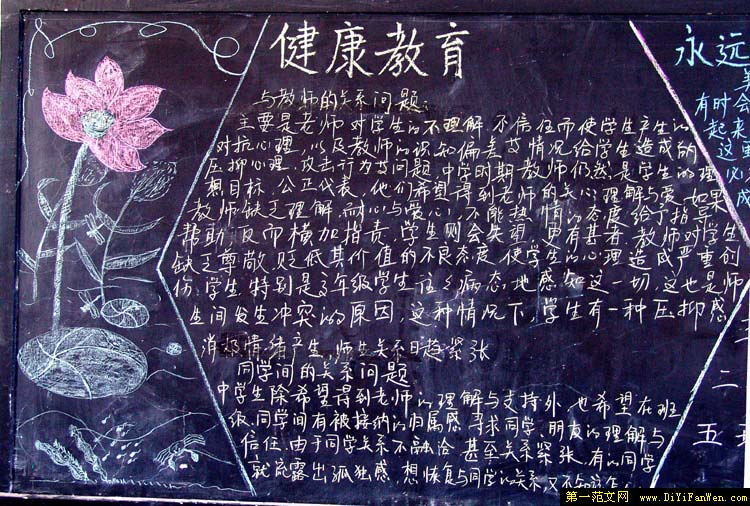 健康教育
与教师的关系问题
主要是老师对学生的不理解、不信任而使学生产生的
对抗心理,以及教师的认知偏差等情况给学生造成的
压抑心理,攻击行为等问题.中学时期,教师仍然是学生的理
想目标,公正代表,他们希望得到老师的关心理解与爱.如果
教师缺乏理解、耐心与爱心,不能热情的态度给予指导
帮助,反而横加指责,学生则会失望.更有甚者,教师对学生
缺乏尊敬,贬低其价值的不良态度,使学生的心理造成严重创
伤.学生,特别是高年级学生往往病态地感知这一切,这也是师
生间发生冲突的原因,这种情况下,学生有一种压抑感
消极情绪产生,师生关系日趋紧张
同学间的关系问题
中学生除希望得到老师的理解与支持外,也希望在班
级、同学间有被接纳的归属感,寻求同学、朋友的理解与
信任.由于同学关系不融洽,甚至关系紧张,有的同学
就流露出孤独感,想恢复与同学的关系,又不知
永远
有时
起来
这
必
成
一
二
五
第一范文网 www.DiYiFanWen.com